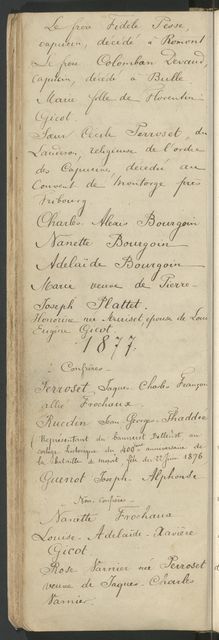 Le frère Fidèle Pesse,
capucin, décédé à Romont
Le frère Colomban Devaud,
capucin, décédé à Bulle
Marie fille de Florentin
Gicot.
Sœur Cécile Perroset, du
Landeron, religieuse de l'ordre
des Capucines, décédée au
Couvent de Montorge près
Fribourg
Charles Alexis Bourgoin
Nanette Bourgoin
Adelaïde Bourgoin
Marie veuve de Pierre-
Joseph Plattet.
Honorine née epouse de Louis
Eugène Gicot.
1877.
Confrères.
Perroset, Jaques Charles François
allié Frochaux
Ruedin Jean Georges Thaddée
Représentant du Banneret Bellenot au
cortège historique du 400me anniversaire de
la Bataille de Morat fête du 22 juin 1876
Guinot Joseph Alphonse
Non Confrères.
Nanette Frochaux
Louise-Adelaïde-Xavière
Gicot
Rose Varnier née Perroset
veuve de Jaques-Charles
Varnier.